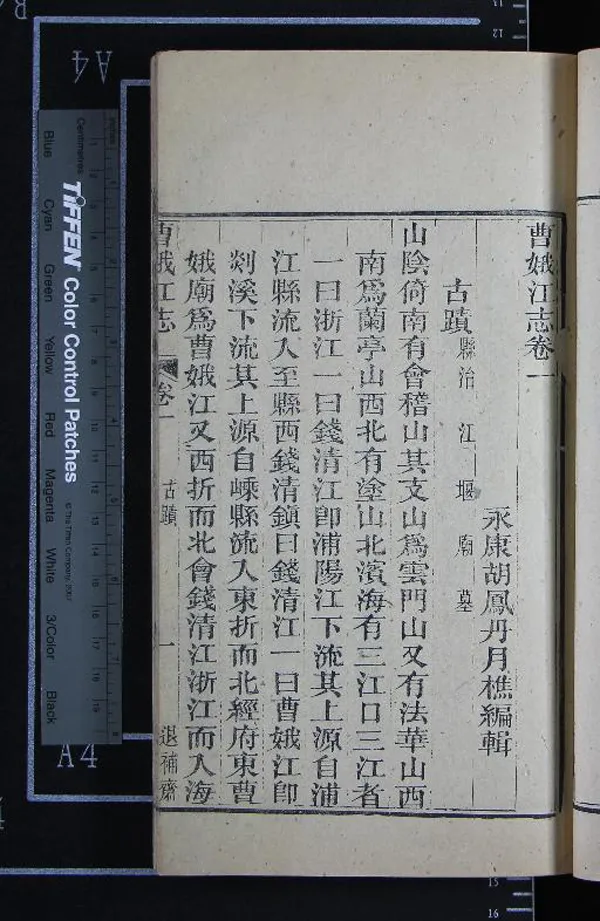 曹娥江志卷一
永康胡鳳丹月樵編輯
古蹟 縣治 江 堰 廟 墓
山陰倚南有會稽山其支山爲雲門山又有法華山西
南爲蘭亭山西北有塗山北濱海有三江口三江者
一曰浙江一曰錢清江卽浦陽江下流其上源自浦
江縣流入至縣西錢清鎭曰錢清江一曰曹娥江卽
剡溪下流其上源自嵊縣流入東折而北經府東曹
娥廟爲曹娥江又西折而北會錢清江浙江而入海
曹娥江志 卷一 古蹟 一 退補齋
A4
A4
TIFFEN Color Control Patches
© The Tiffen Company, 2007
Centimetres
Inches
Blue Cyan Green Yellow Red Magenta White 3/Color Black
12
15
16